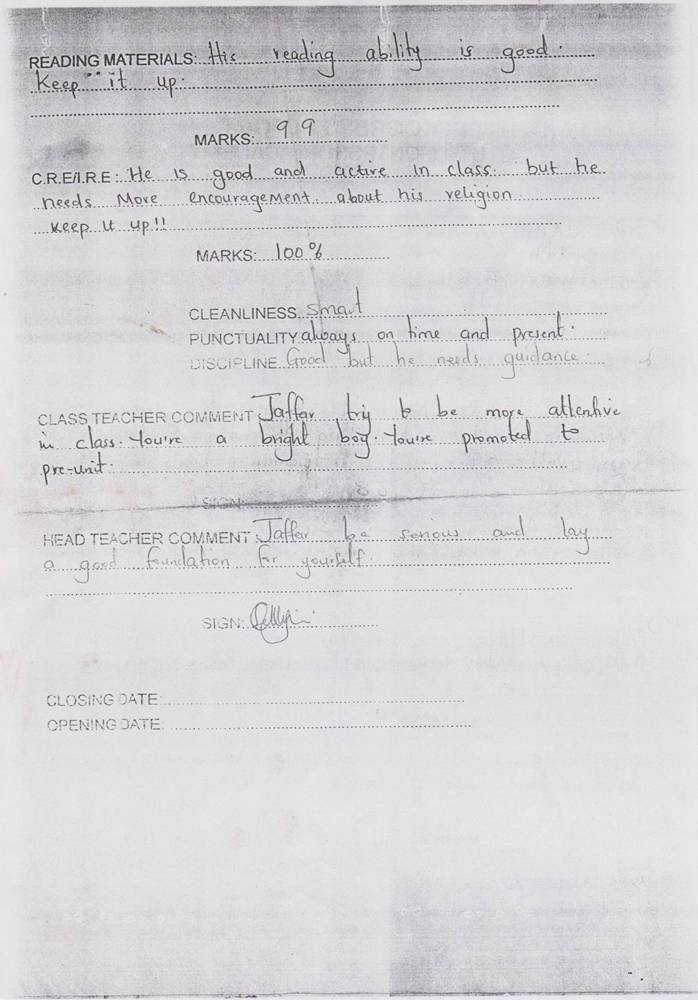 READING MATERIALS: His reading ability is good.
Keep it up.
MARKS: 99
C.R.E/I.R.E: He is good and active in class. but he
needs More encouragement about his religion.
Keep it up!!
MARKS: 100%
CLEANLINESS smart
PUNCTUALITY always on time and present.
DISCIPLINE Good but he needs guidance.
CLASS TEACHER COMMENT Jaffar try to be more attentive
in class. You're a bright boy. You're promoted to
pre-unit.
SIGN:
HEAD TEACHER COMMENT: Jaffar be serious and lay
a good foundation for yourself.
SIGN:
CLOSING DATE:
OPENING DATE: